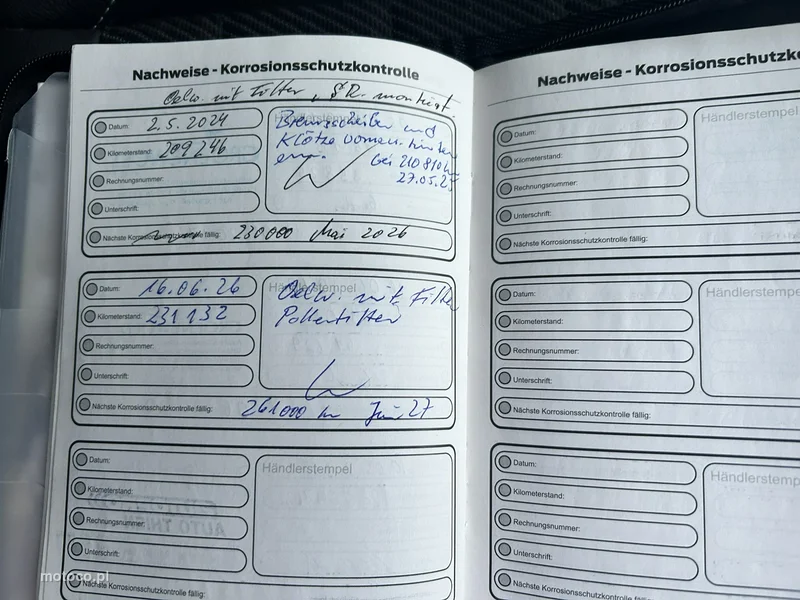 Nachweise - Korrosionsschutzkontrolle
Oelw. mit Filter, SR. montiert.
Datum: 2.5.2024
Kilometerstand: 209246
Rechnungsnummer:
Unterschrift:
Händlerstempel
Bremsscheiben und
Klötze vorne u. hinten
ern.
bei 210810 km
27.05.25
Nächste Korrosionsschutzkontrolle fällig: 230000 Mai 2026
Datum: 16.06.26
Kilometerstand: 231132
Rechnungsnummer:
Unterschrift:
Händlerstempel
Oelw. mit Filter
Pollenfilter
Nächste Korrosionsschutzkontrolle fällig: 261000 km Juni 27
Datum:
Kilometerstand:
Rechnungsnummer:
Unterschrift:
Händlerstempel
Nächste Korrosionsschutzkontrolle fällig:
Nachweise - Korrosionsschutzko
Datum:
Kilometerstand:
Rechnungsnummer:
Unterschrift:
Händlerstempe
Nächste Korrosionsschutzkontrolle fällig:
Datum:
Kilometerstand:
Rechnungsnummer:
Unterschrift:
Händlerstempe
Nächste Korrosionsschutzkontrolle fällig:
Datum:
Kilometerstand:
Rechnungsnummer:
Unterschrift:
Händlerstemp
Nächste Korrosionsschutzkontrolle fällig:
motoco.pl